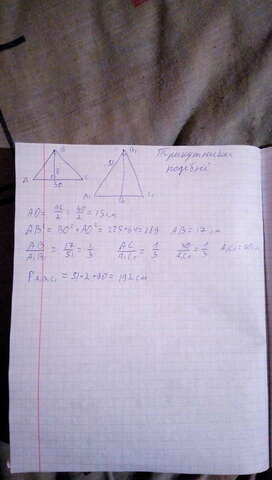 Трикутники
подібні
B
B₁
8
51
A
D
C
30
A₁
C₁
AD = AC/2 = 30/2 = 15 см
AB² = BD² + AD² = 225+64=289 AB = 17 см
AB/A₁B₁ = 17/51 = 1/3 AC/A₁C₁ = 1/3 30/A₁C₁ = 1/3
P A₁B₁C₁ = 51·2+90=192 см